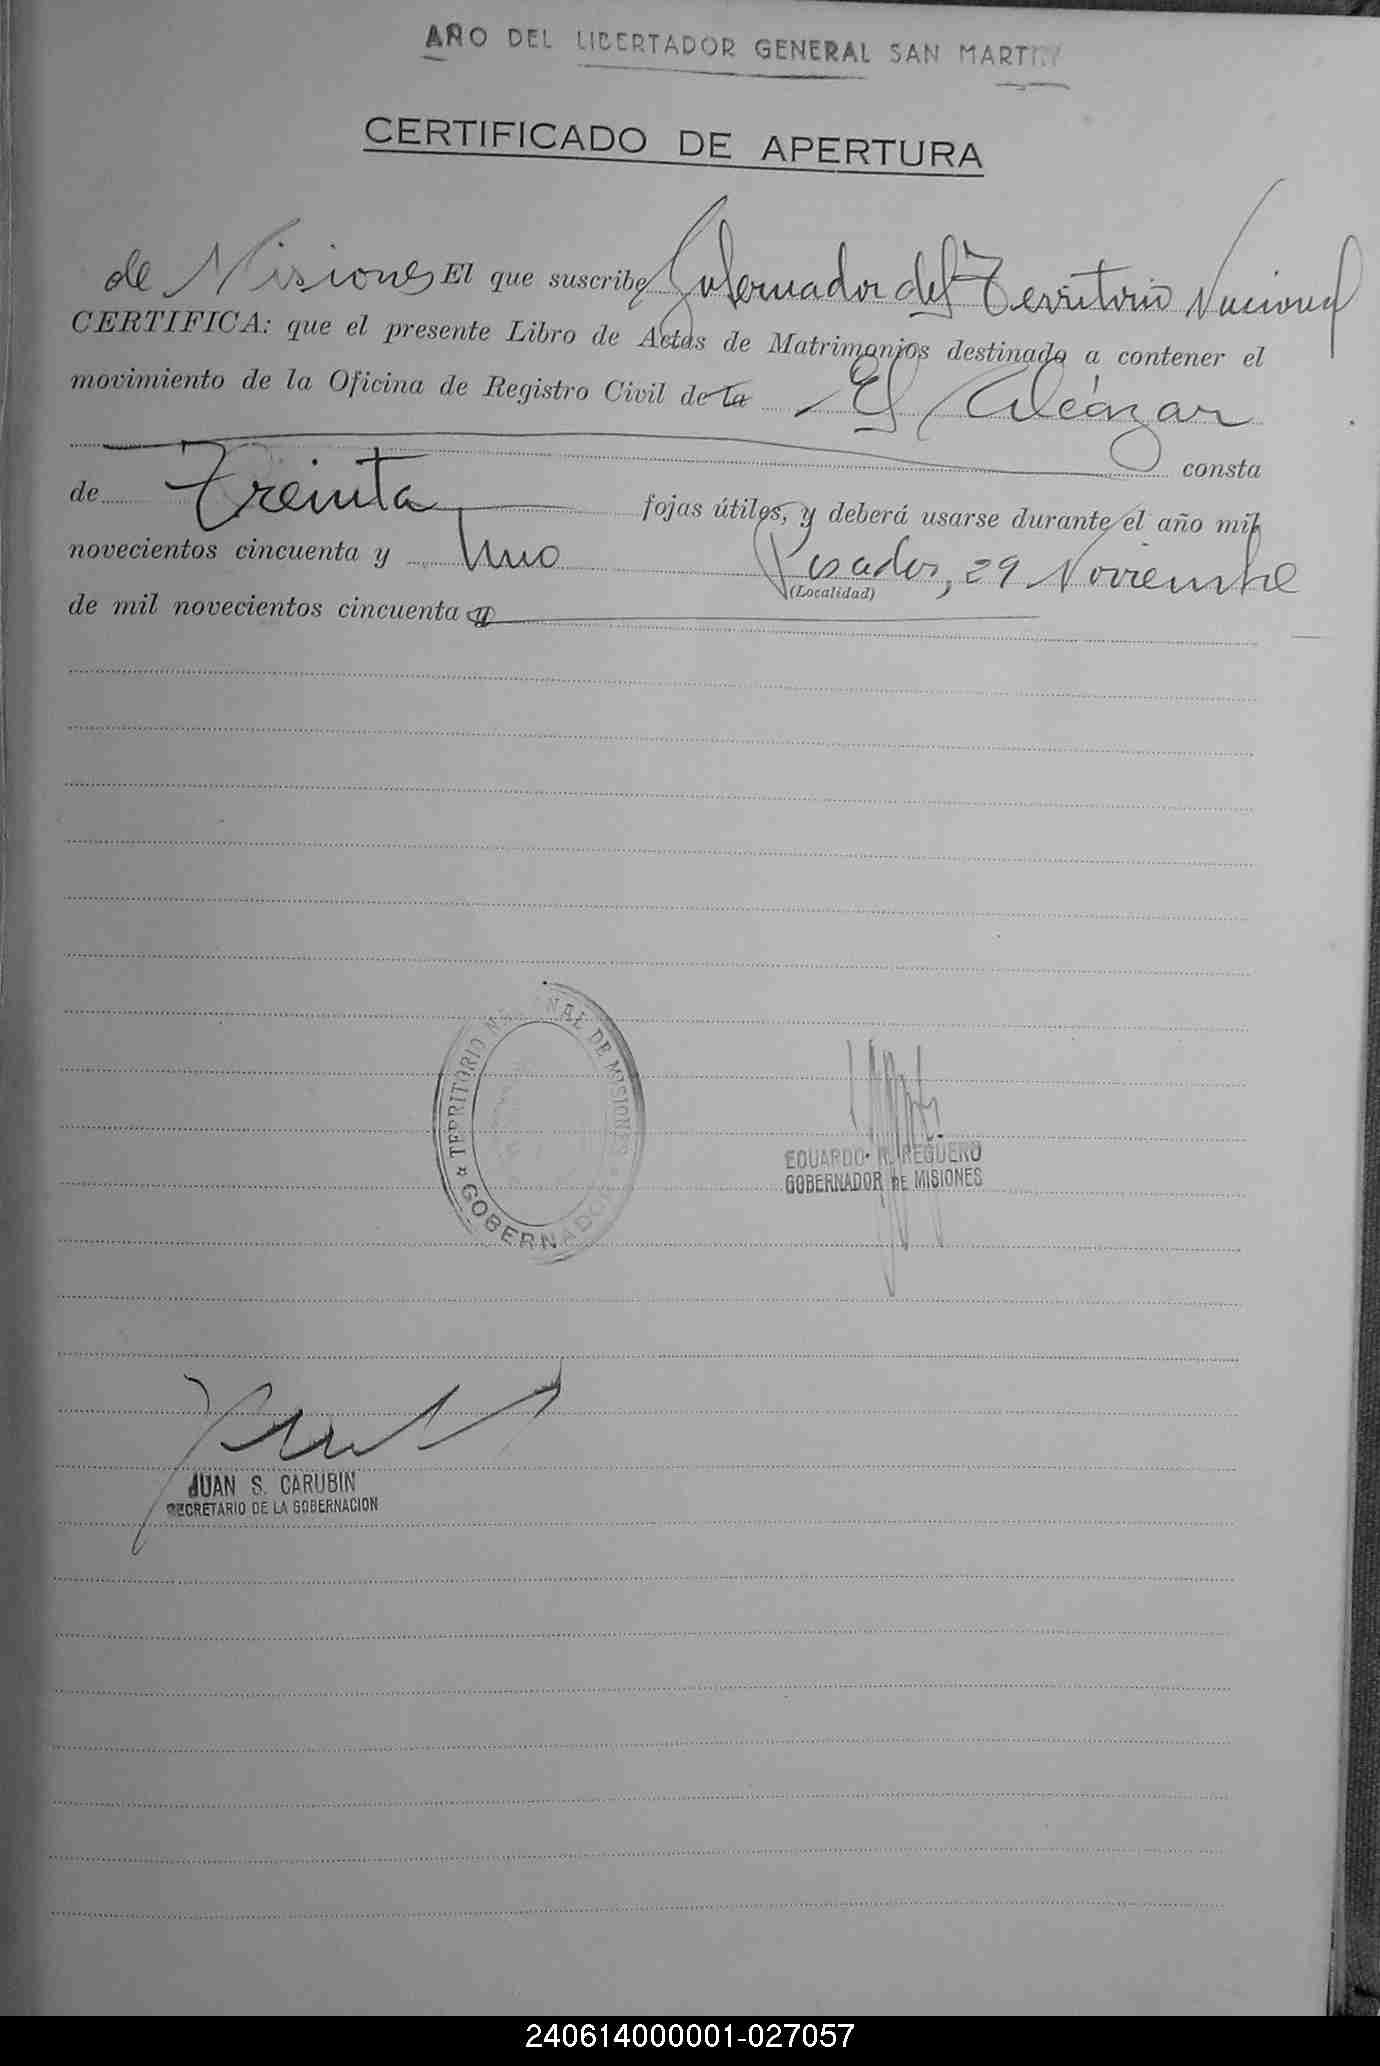 AÑO DEL LIBERTADOR GENERAL SAN MARTIN
CERTIFICADO DE APERTURA
de Misiones El que suscribe Gobernador del Territorio Nacional
CERTIFICA: que el presente Libro de Actas de Matrimonios destinado a contener el
movimiento de la Oficina de Registro Civil de la El Alcázar
consta
de Treinta fojas útiles, y deberá usarse durante el año mil
novecientos cincuenta y Uno Posadas, 29 Noviembre
(Localidad)
de mil novecientos cincuenta y
TERRITORIO NACIONAL DE MISIONES
GOBERNADOR
EDUARDO REGUERO
GOBERNADOR DE MISIONES
JUAN S. CARUBIN
SECRETARIO DE LA GOBERNACION
240614000001-027057